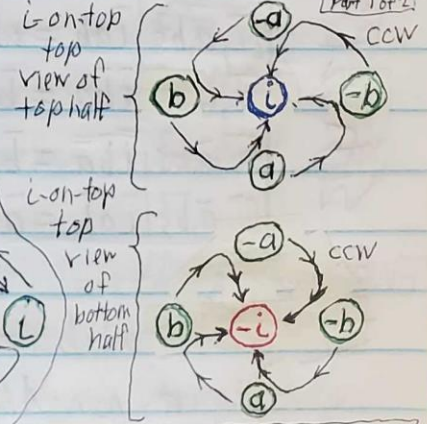 [Part 1 of 2]
i-on-top
top
view of
top half
-a
CCW
b
i
-b
a
i-on-top
top
view
of
bottom
half
-a
CCW
b
-i
-b
a
i